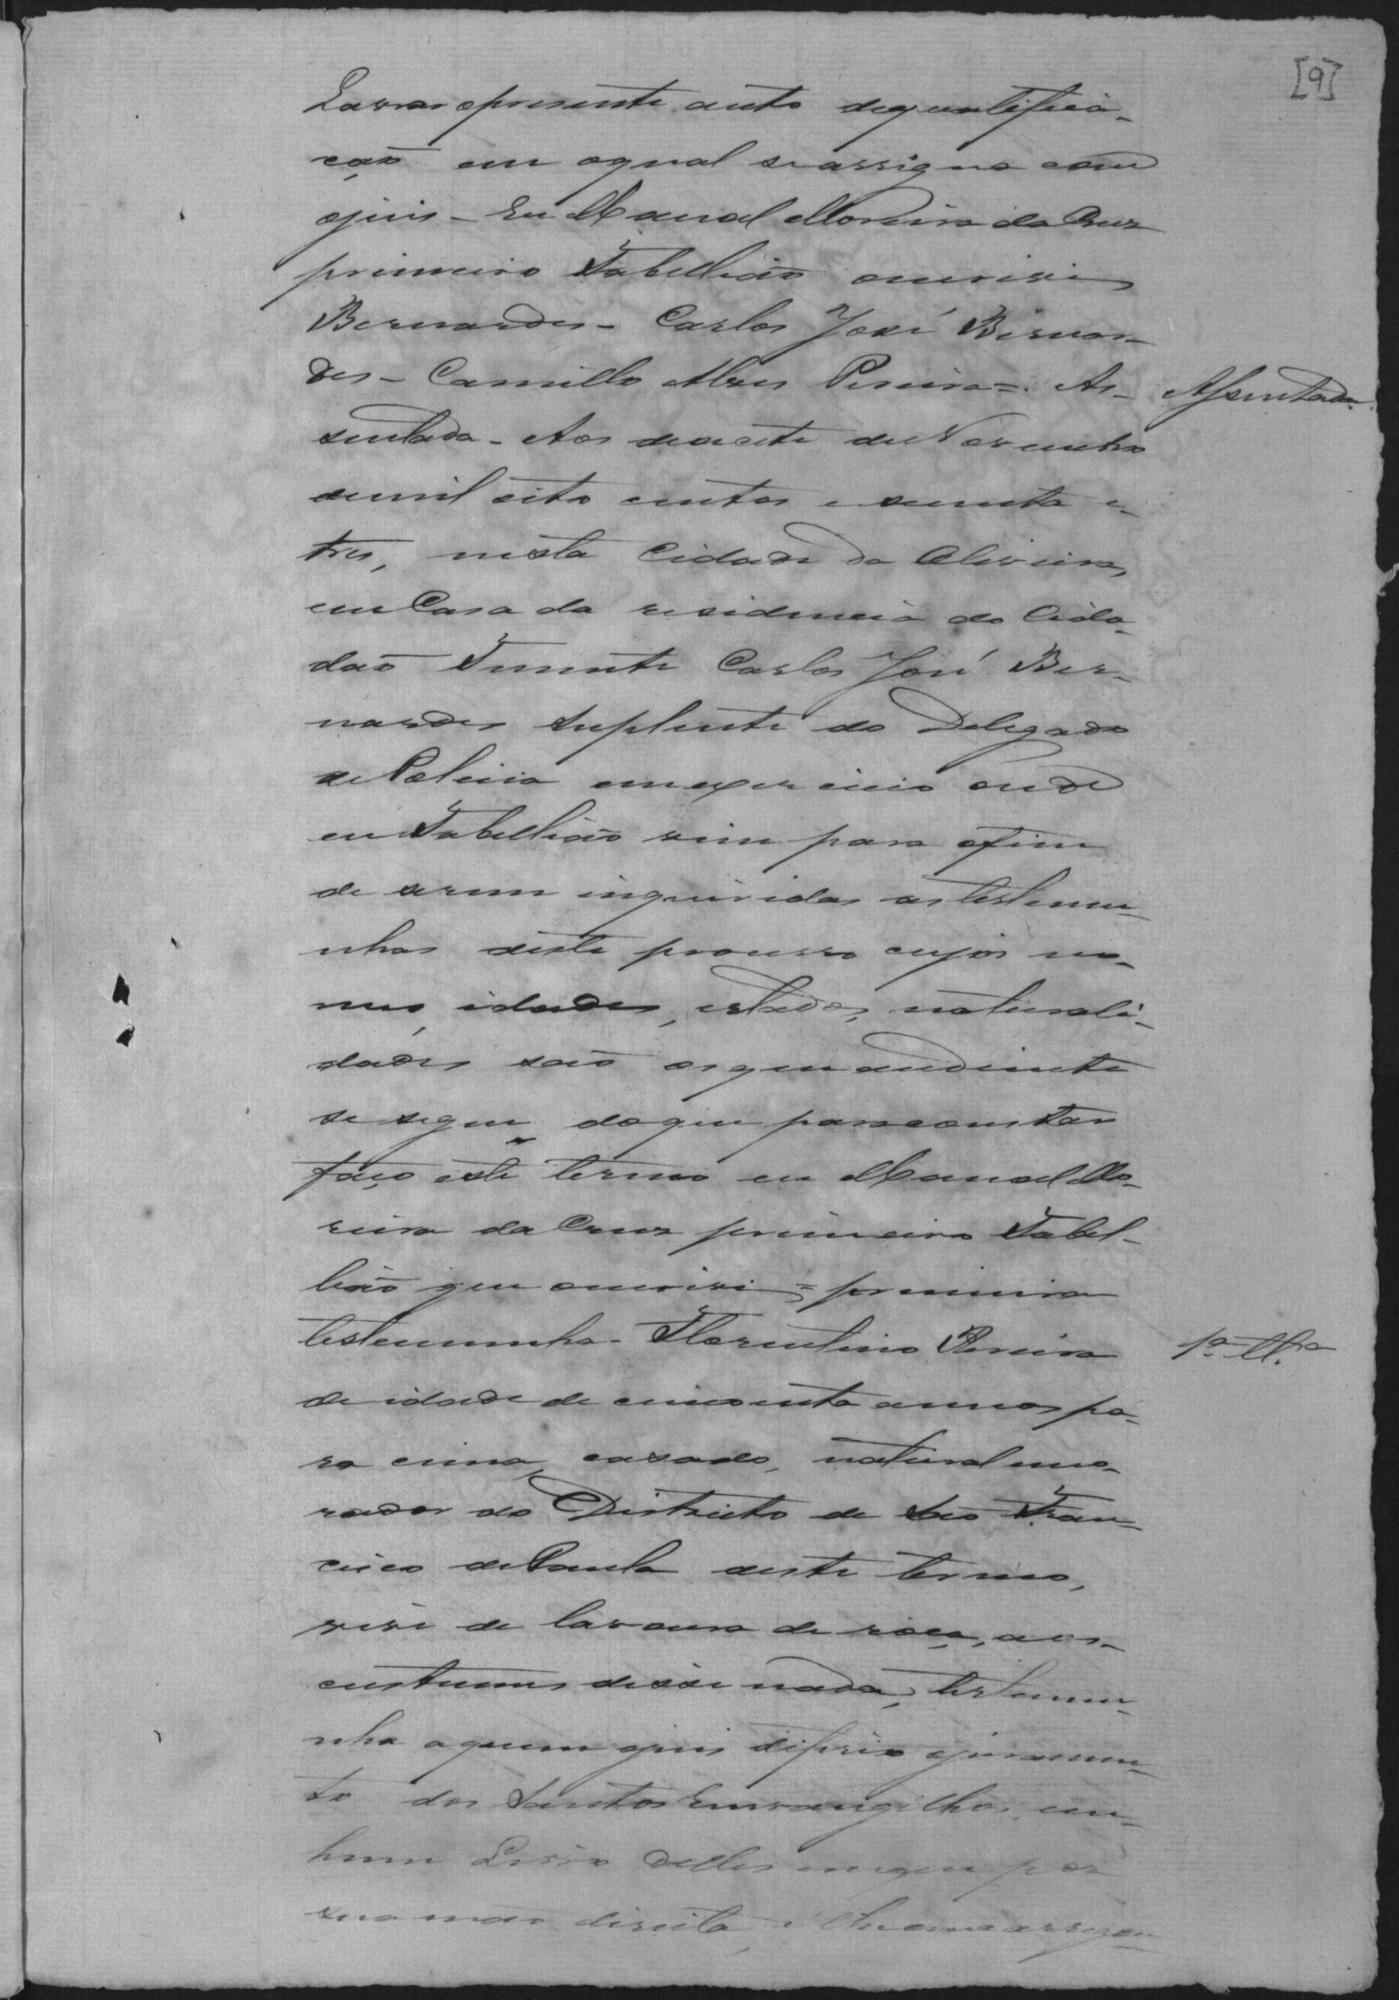 [9]
Lavrar opresente auto dequalifica-
ção em oqual se assigna com
ojuis - Eu Manoel Moreira da Cruz
primeiro Tabellião oescrivi
Bernardes - Carlos José Bernar-
des - Camillo Alves Pereira =. As-
Assentada.
sentada - Aos desacete de Novembro
demil oito centos e secenta e
tres, nesta Cidade da Oliveira,
em Casa da residencia do Cida-
dão Tenente Carlos José Ber-
nardes Suplente do Delegado
de Policia emexercicio onde
eu Tabellião vim para ofim
de serem inqueridas as testemu-
nhas deste processo cujos no-
mes, idades, estados, naturali-
dades são osque audiente
se segue doque para constar
faço este termo eu Manoel Mo-
reira da Cruz primeiro Tabel-
lião que oescrivi = primeira
testemunha - Florentino Pereira
1ª Tª
de idade de cincoenta annos pa-
ra cima, casado, natural mo-
rador do Districto de São Fran-
cisco de Paula deste termo,
vive de lavoura de roça, aos
custumes disse nada, testemu-
nha aquem ojuis diferio ojuramen-
to dos Santos Emvangelhos, em
hum Livro delles emque pos
sua mão direita, e lhe encarregou